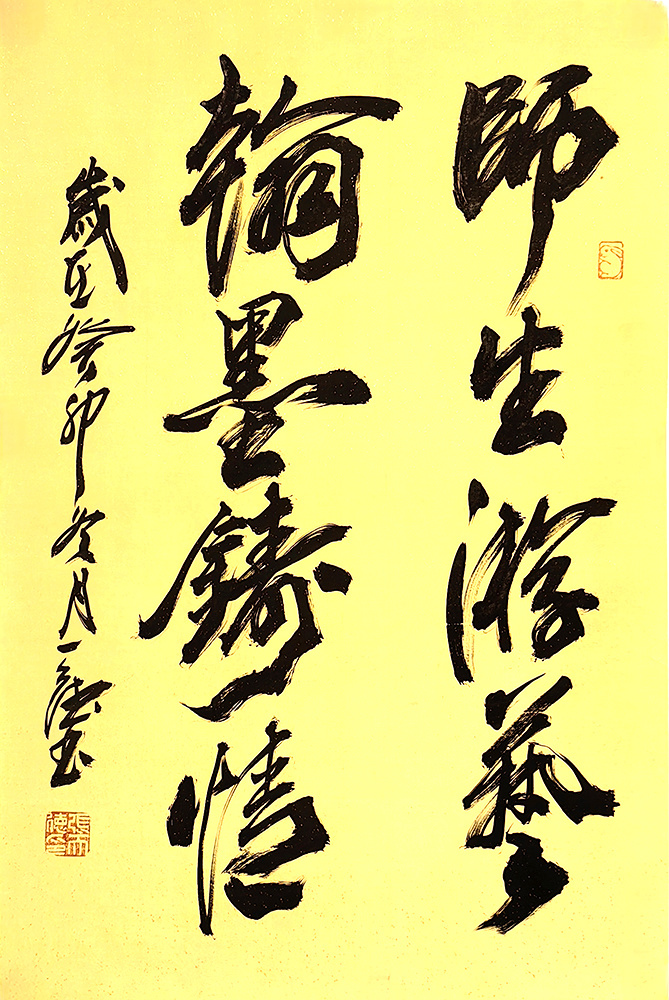 師生游藝
翰墨鑄情
歲在癸卯冬月